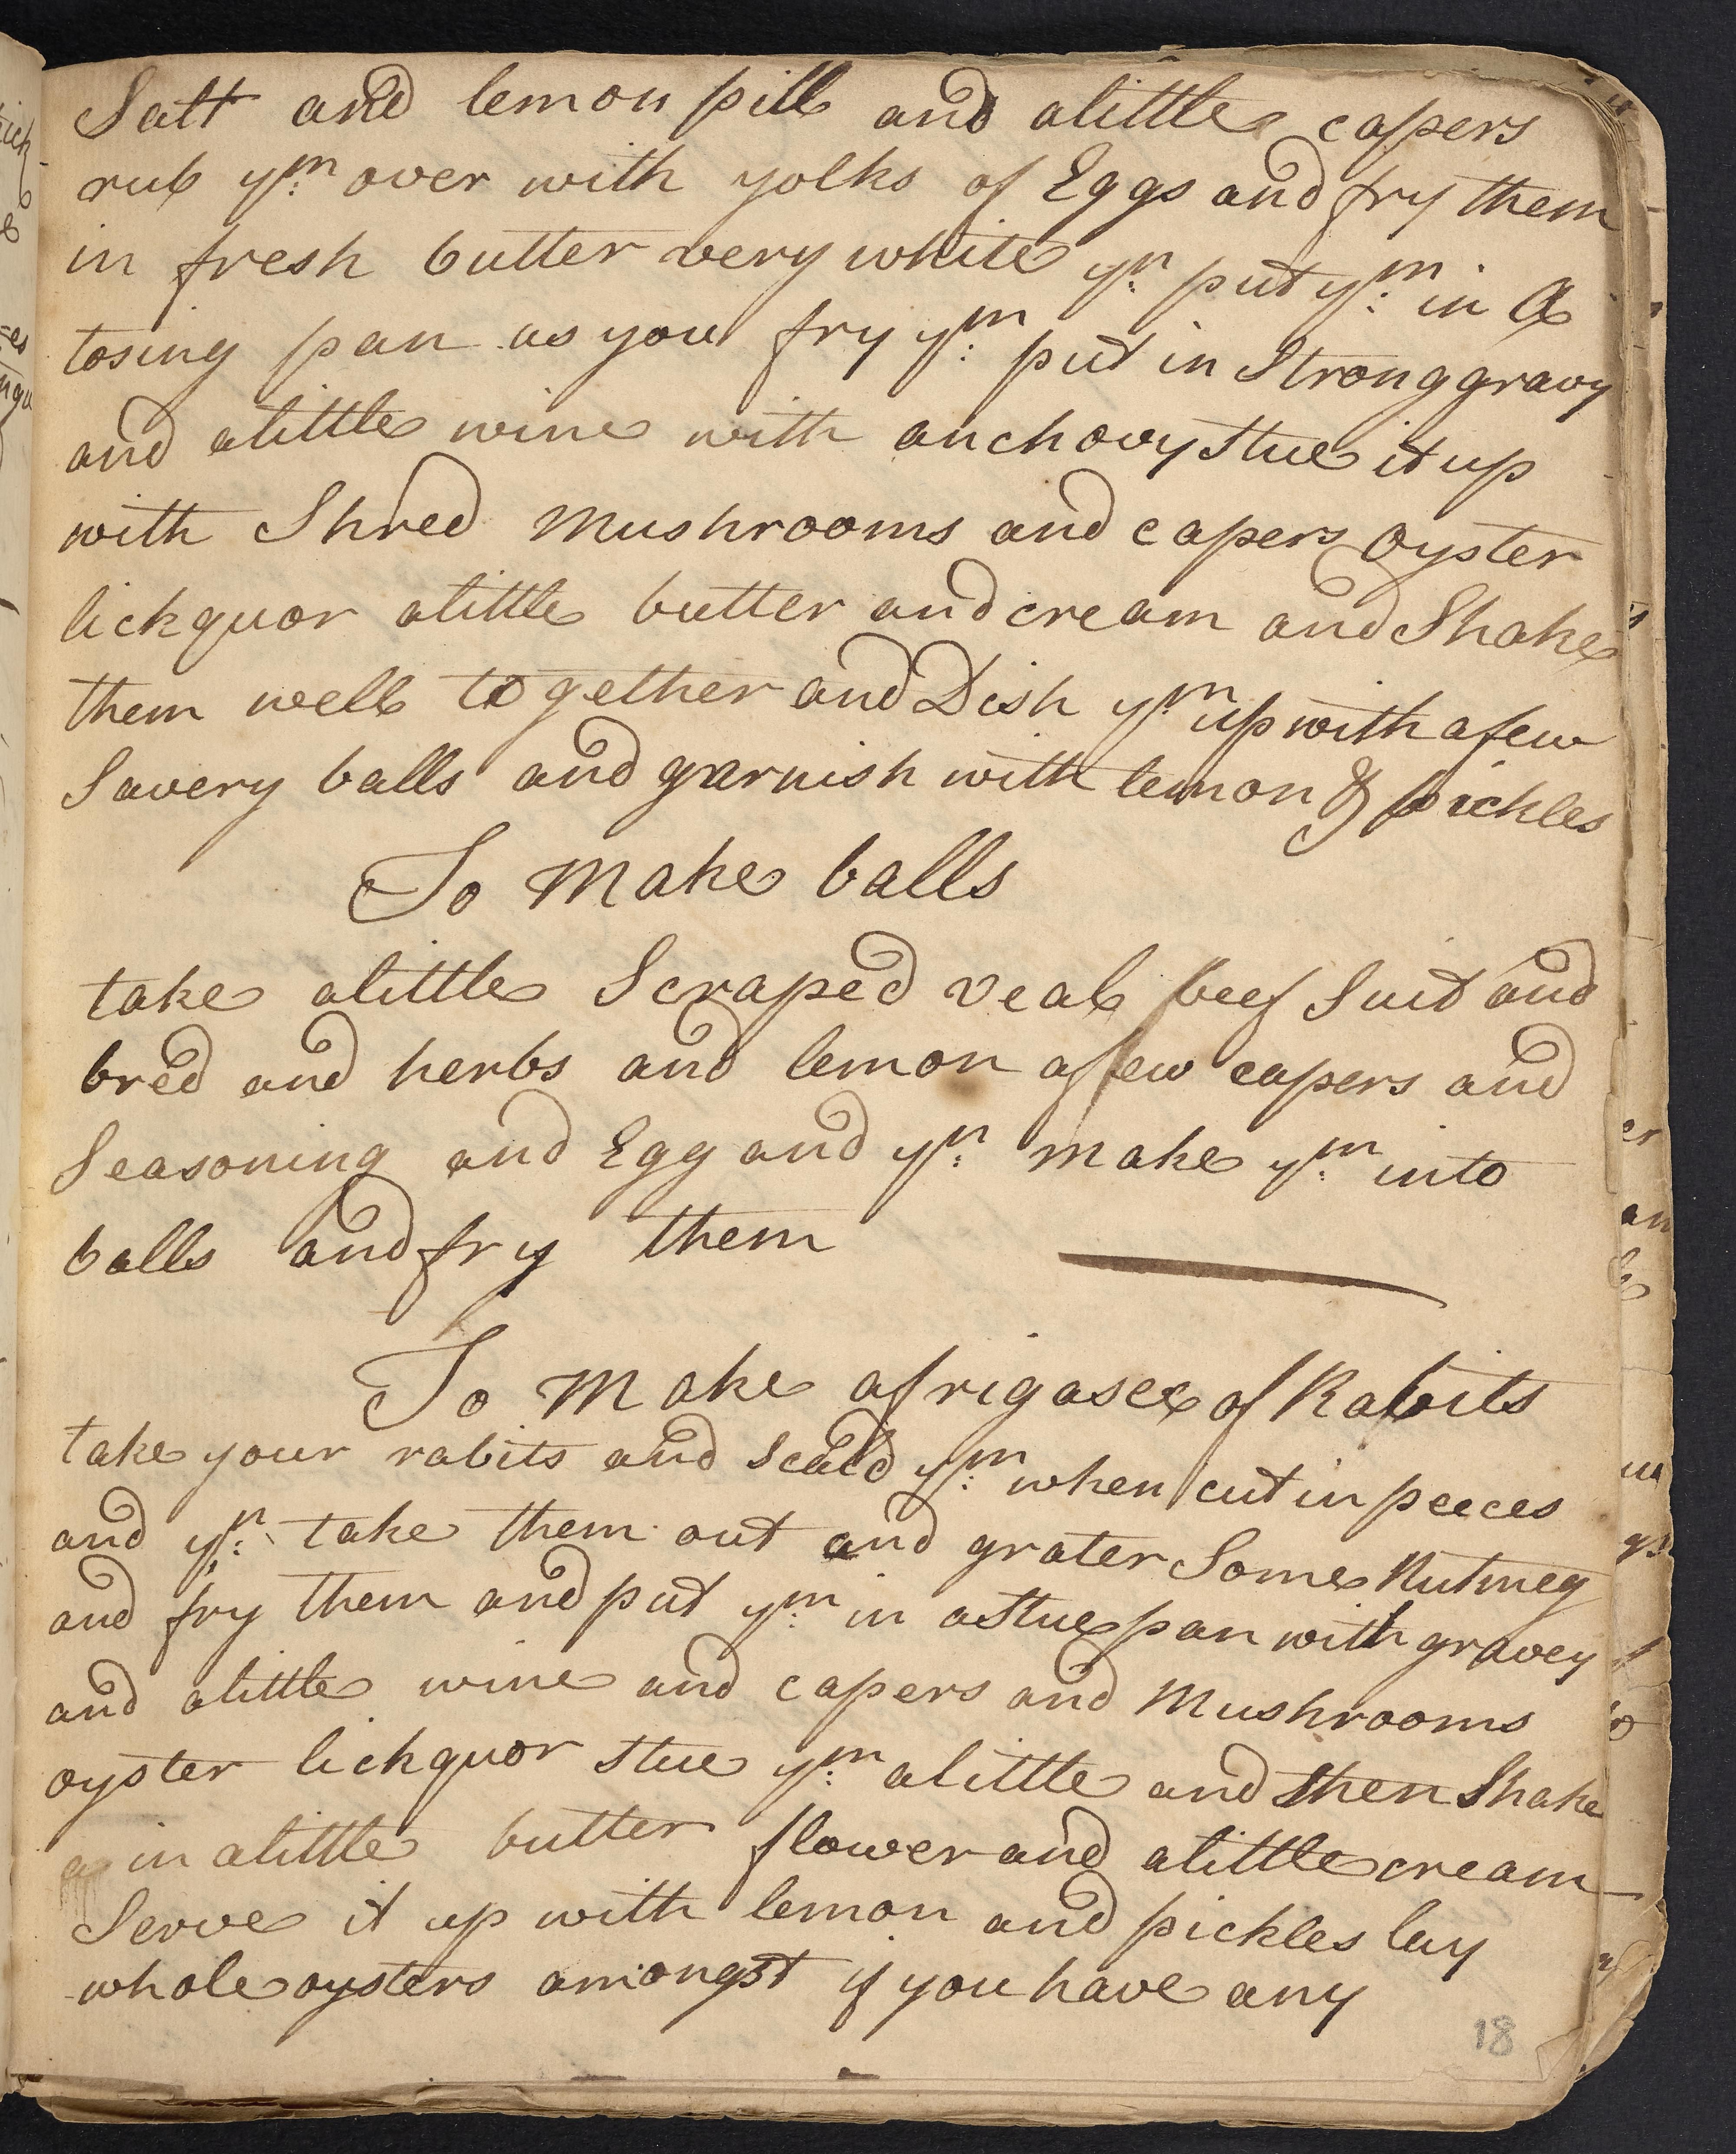 Salt and lemon pill and alittle capers
rub y:m over with yolks of Eggs and fry them
in fresh butter very white y:n put y:m in A
tosing pan as you fry y:m put in Strong gravy
and alittle wine with anchovy Stue it up
with Shred Mushrooms and capers Oyster
lickquor alittle butter and cream and Shake
them well together and Dish y:m up with a few
Savery balls and garnish with lemon & pickles
To Make balls
take alittle Scraped veal beef Suit and
bred and herbs and lemon a few capers and
Seasoning and Egg and y:n make y:m into
balls and fry them
To Make afrigasee of Rabits
take your rabits and Scald y:m when cut in peeces
and y:n take them out and grater Some Nutmeg
and fry them and put y:m in a Stue pan with gravey
and alittle wine and capers and Mushrooms
oyster lickquor Stue y:m alittle and then Shake
in alittle butter flower and alittle cream
Serve it up with lemon and pickles lay
whole oysters amongst if you have any
18